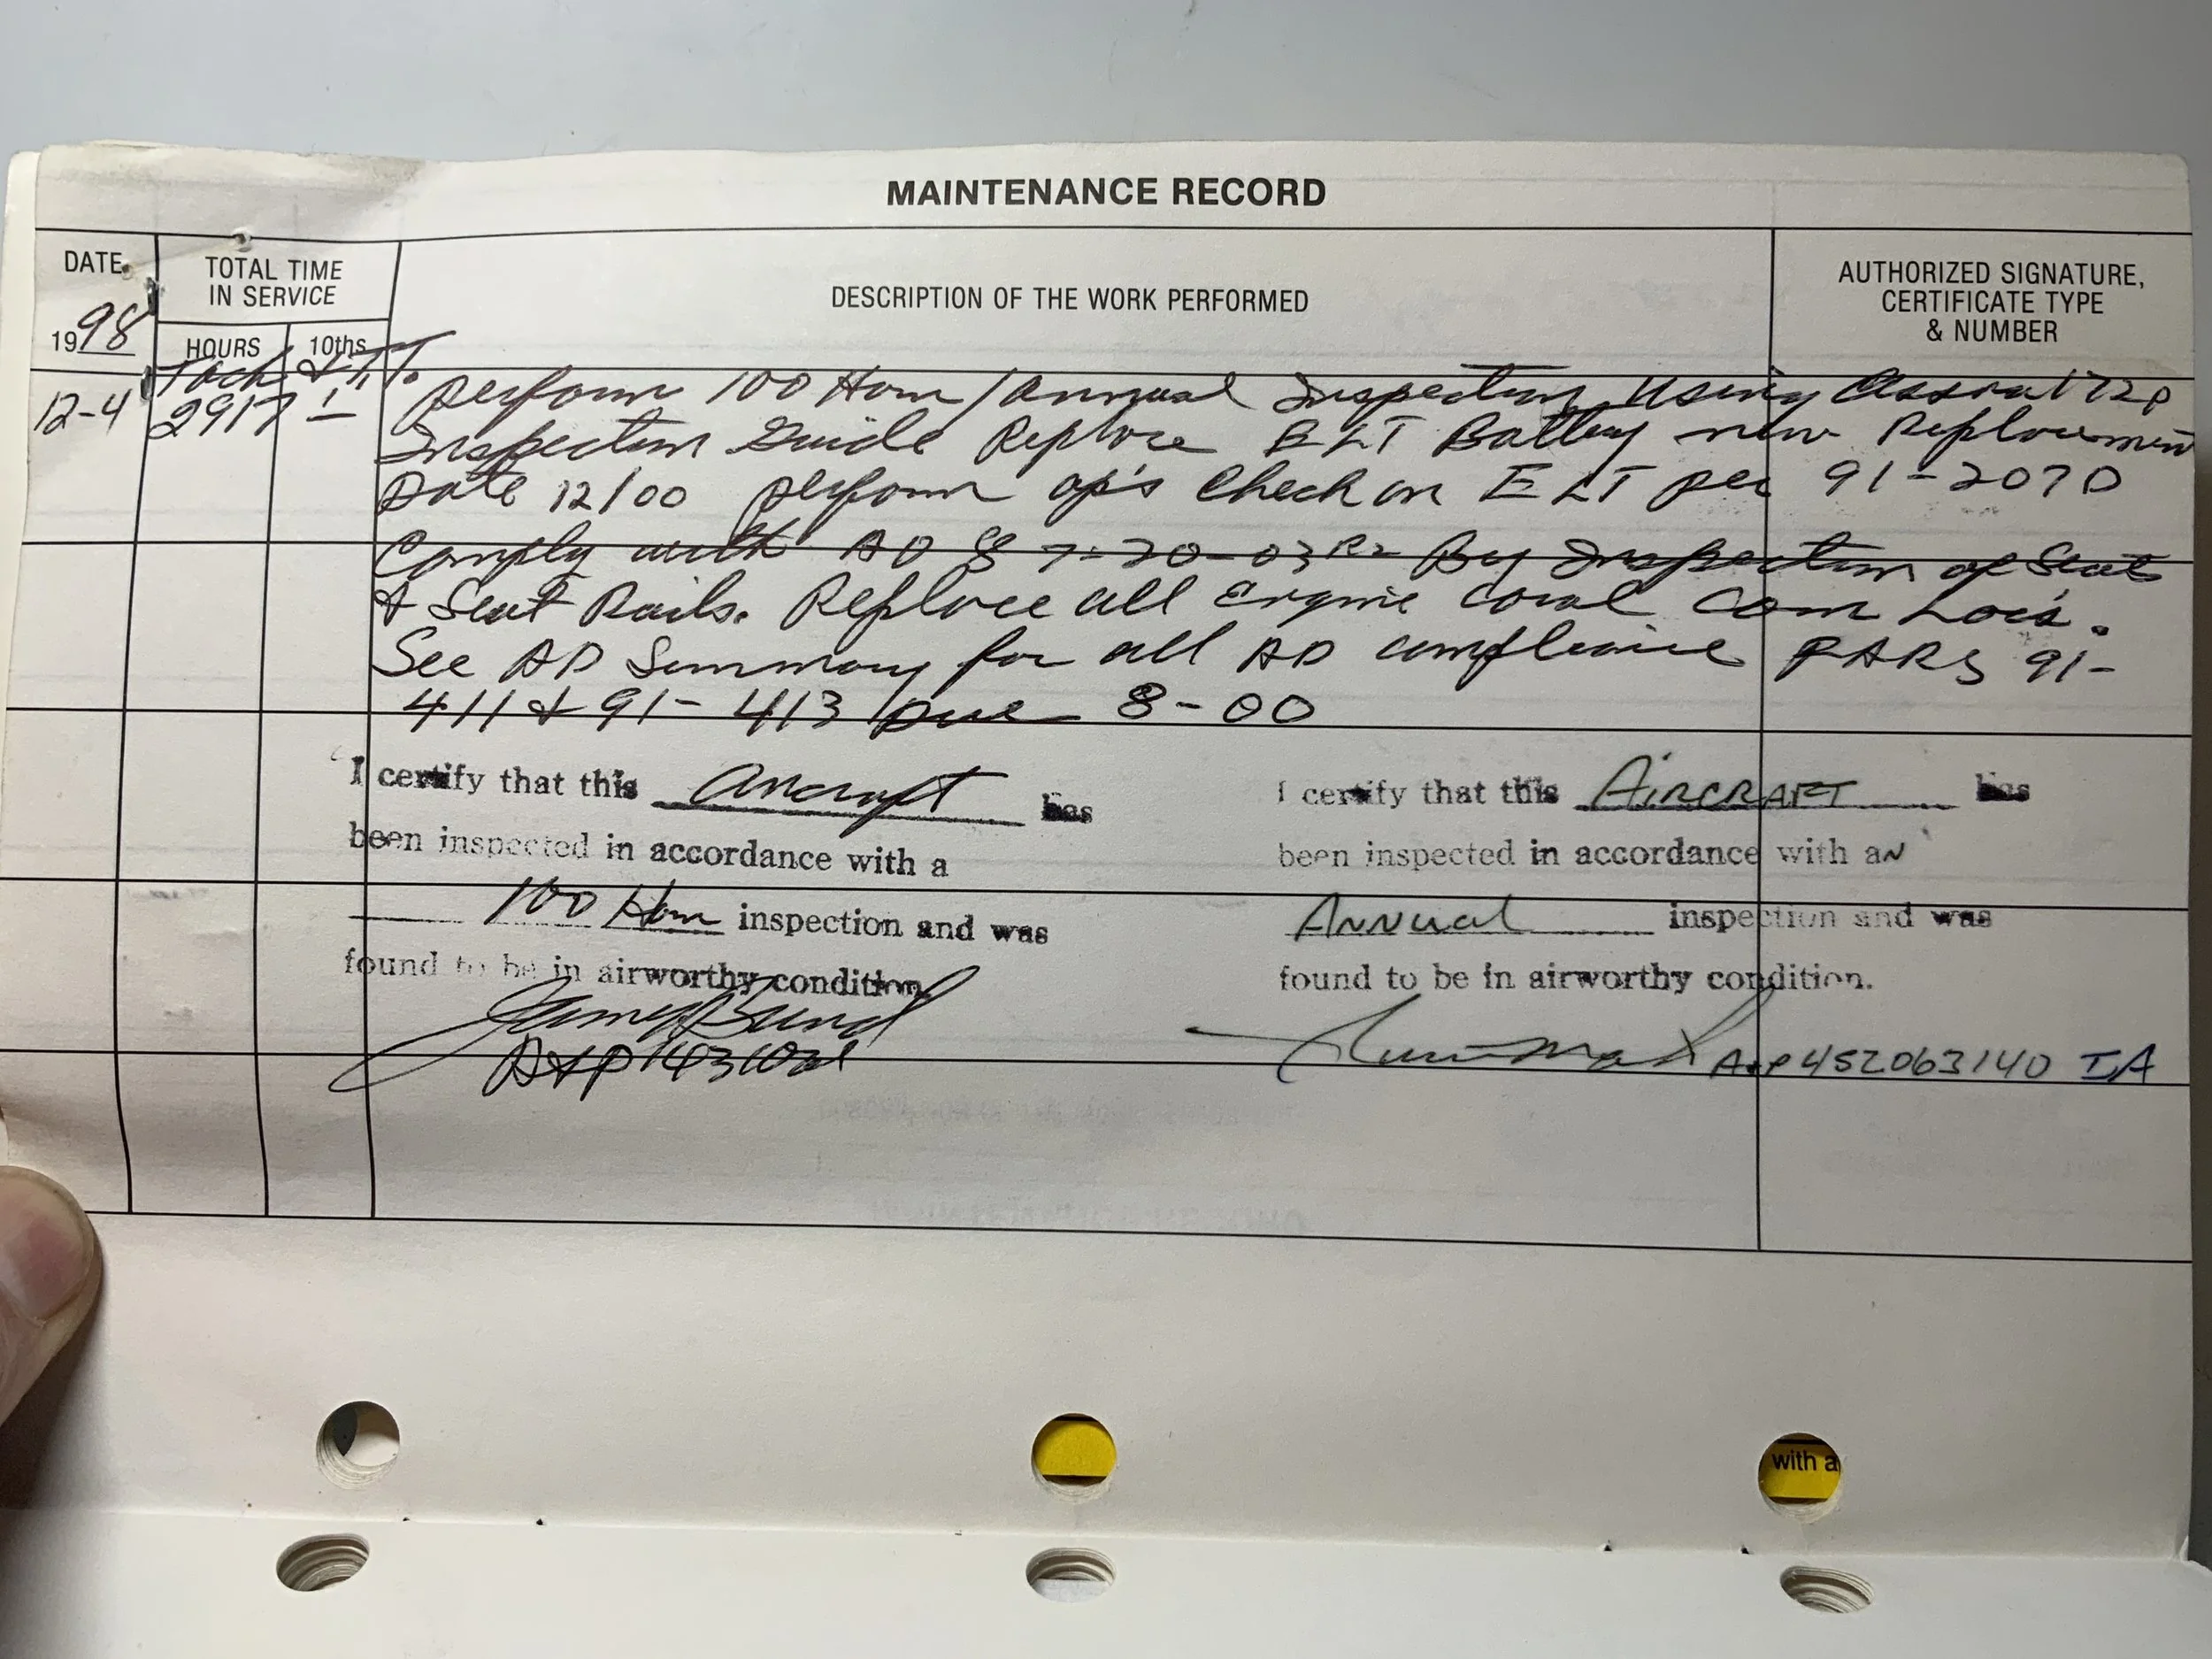 MAINTENANCE RECORD
DATE
1998
TOTAL TIME
IN SERVICE
HOURS 10ths
DESCRIPTION OF THE WORK PERFORMED
AUTHORIZED SIGNATURE,
CERTIFICATE TYPE
& NUMBER
Tach & T.T.
12-4 2917 1 perform 100 Hour/annual Inspection Using Cessna 172P
Inspection Guide Replace ELT Battery new Replacement
Date 12/00 perform op's Check on ELT per 91-207D
Comply with AD 87-20-03R2 By Inspection of Seats
& Seat Rails. Replace all Engine
See AD Summary for all AD compliance FARS 91-
411 & 91-413 Due 8-00
I certify that this aircraft has
been inspected in accordance with a
100 Hour inspection and was
found to be in airworthy condition
A&P
I certify that this AIRCRAFT has
been inspected in accordance with aN
ANNual inspection and was
found to be in airworthy condition.
A&P 452063140 IA
with a